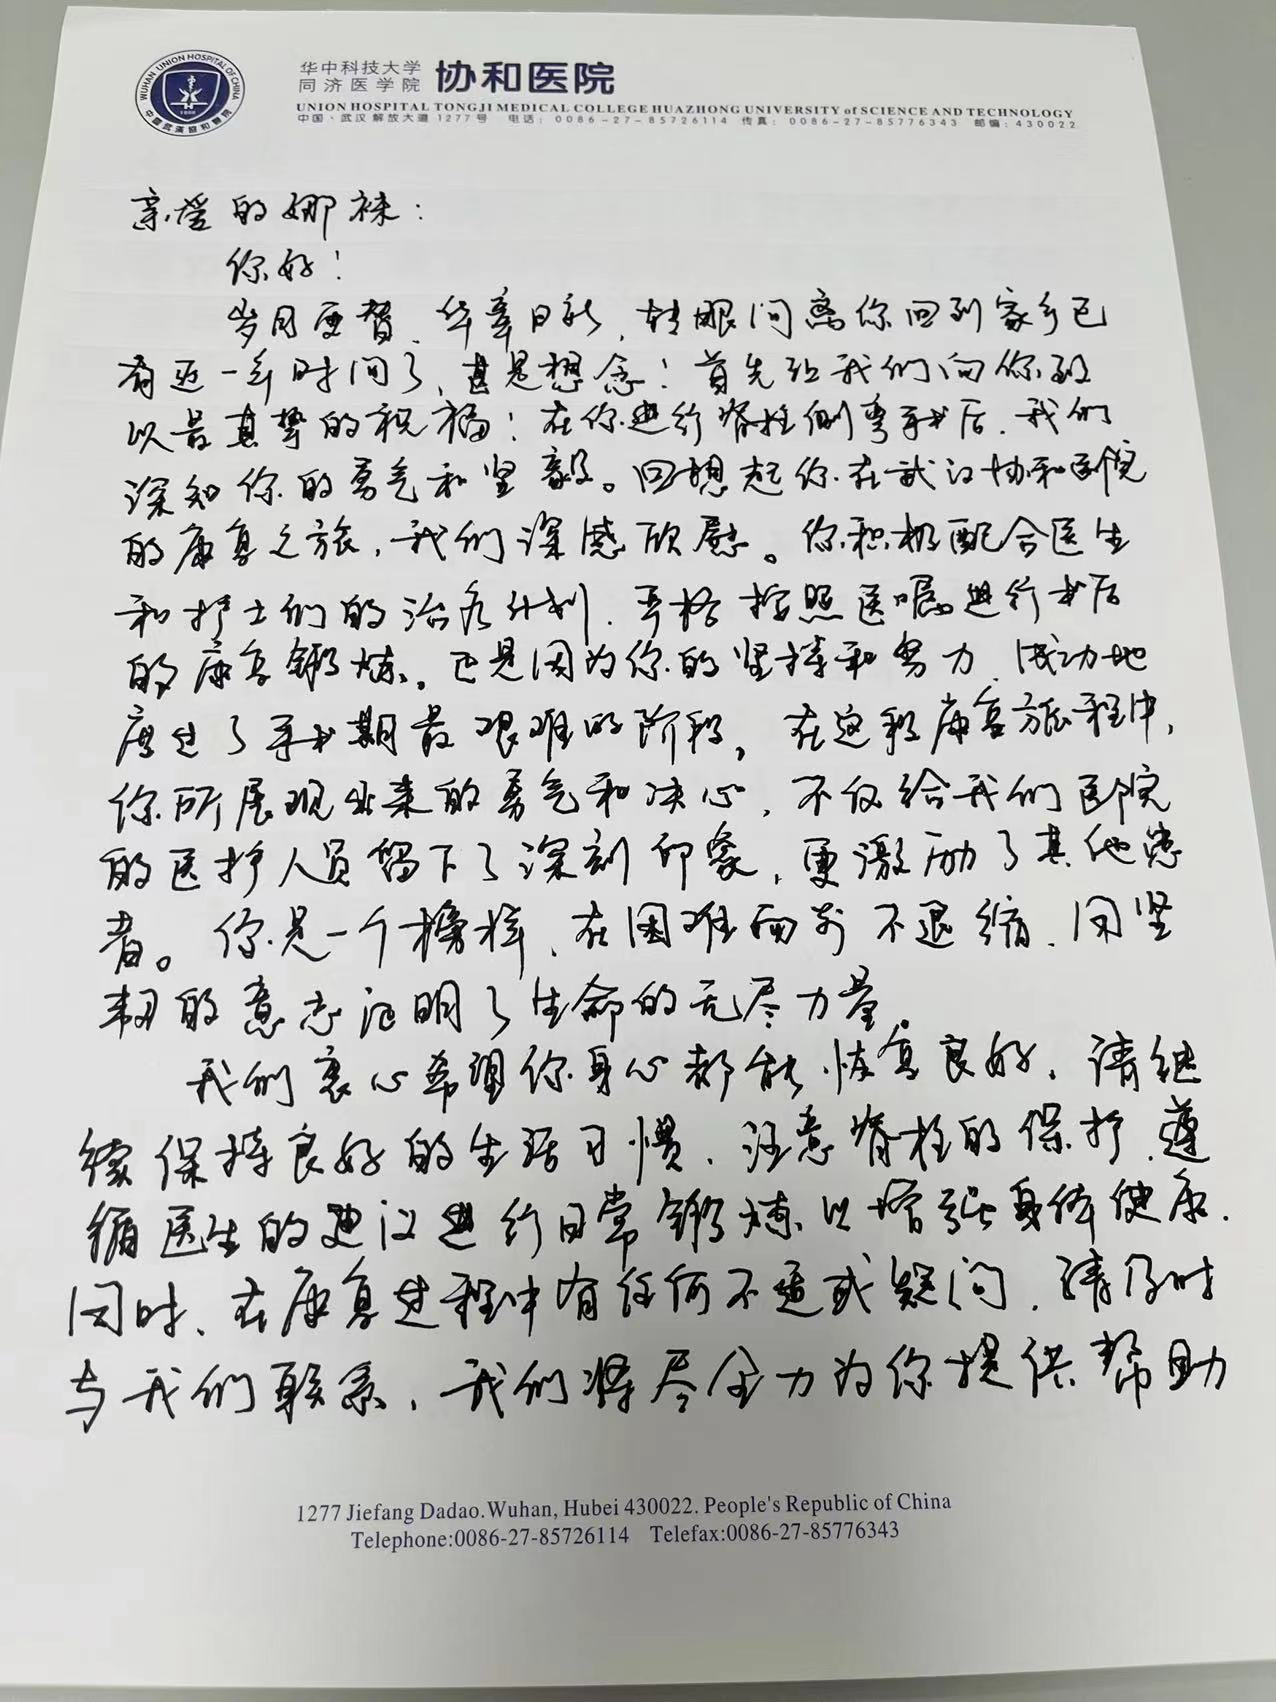 WUHAN UNION HOSPITAL OF CHINA
1866
中國武漢協和醫院
华中科技大学
同济医学院
协和医院
UNION HOSPITAL TONGJI MEDICAL COLLEGE HUAZHONG UNIVERSITY of SCIENCE AND TECHNOLOGY
中国·武汉 解放大道 1277号 电话：0086-27-85726114 传真：0086-27-85776343 邮编：430022
亲爱的娜袜：
你好！
岁月更替、华章日新，转眼间离你回到家乡已
有近一年时间了，甚是想念！首先让我们向你致
以最真挚的祝福！在你进行脊柱侧弯手术后，我们
深知你的勇气和坚毅。回想起你在武汉协和医院
的康复之旅，我们深感欣慰。你积极配合医生
和护士们的治疗计划，严格按照医嘱进行术后
的康复锻炼。正是因为你的坚持和努力，成功地
度过了手术期最艰难的阶段。在这段康复旅程中，
你所展现出来的勇气和决心，不仅给我们医院
的医护人员留下了深刻印象，更激励了其他患
者。你是一个榜样，在困难面前不退缩，用坚
韧的意志证明了生命的无尽力量。
我们衷心希望你身心都能恢复良好，请继
续保持良好的生活习惯，注意脊柱的保护，遵
循医生的建议进行日常锻炼以增强身体健康．
同时，在康复过程中有任何不适或疑问，请及时
与我们联系，我们将尽全力为你提供帮助
1277 Jiefang Dadao.Wuhan, Hubei 430022. People's Republic of China
Telephone:0086-27-85726114 Telefax:0086-27-85776343